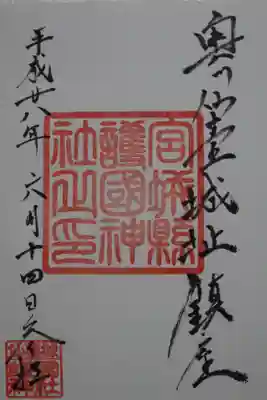 奥州仙臺城址鎮座
宮城縣
護國神
社之印
平成廿八年六月十四日